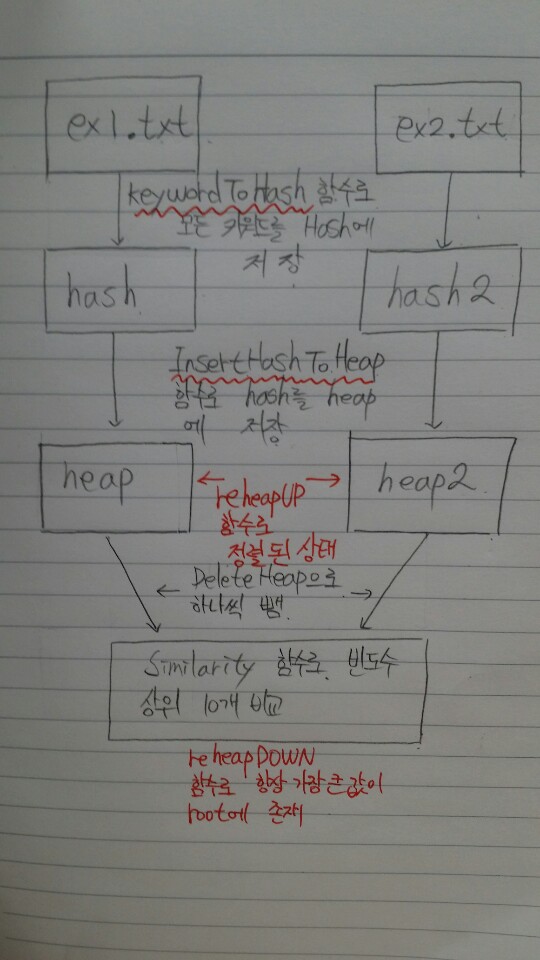 ex1.txt
ex2.txt
keywordToHash 함수로
모든 키워드를 Hash에
저장
hash
hash2
InsertHashToHeap
함수로 hash를 heap
에 저장
heap
heap2
reheapUP
함수로
정렬된 상태
DeleteHeap으로
하나씩 뺌
Similarity 함수로 빈도수
상위 10개 비교
reheapDOWN
함수로 항상 가장 큰 값이
root에 존재